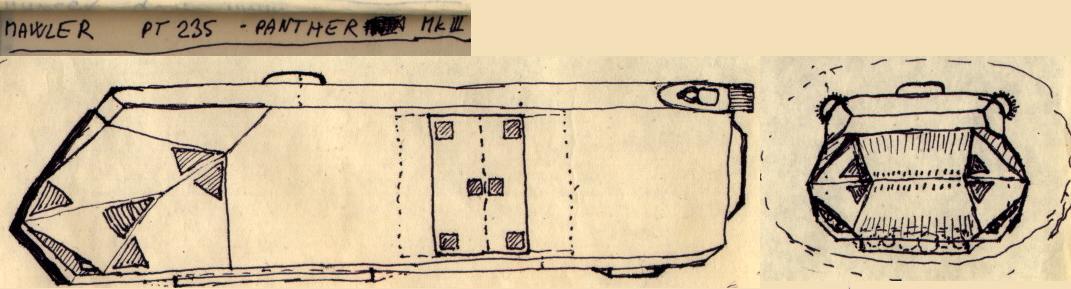 MAWLER PT 235 - PANTHER Mk III